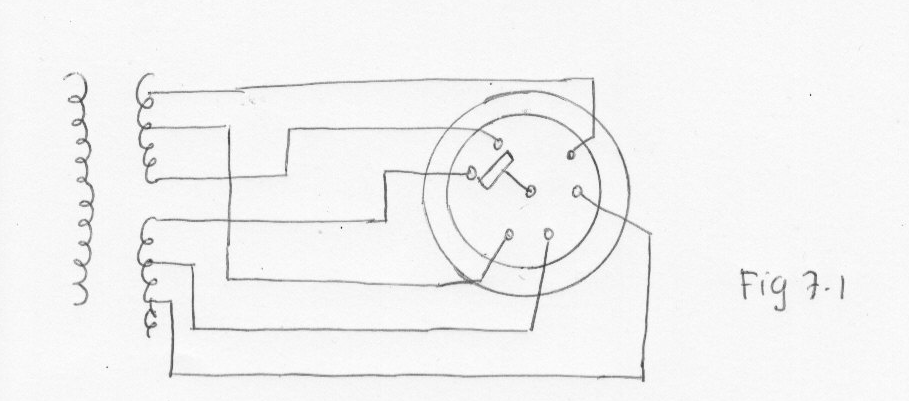 Fig 7.1